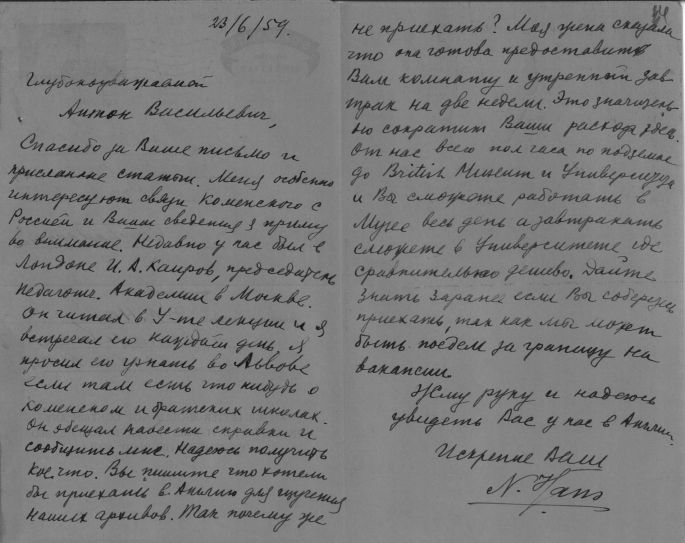 23/6/59.
Глубокоуважаемой
Антон Васильевич,
Спасибо за Ваше письмо и
присланные статьи. Меня особенно
интересуют связи Коменского с
Россией и Ваши сведения я приму
во внимание. Недавно у нас был в
Лондоне И. А. Каиров, председатель
педагогич. Академии в Москве.
Он читал в У-те лекции и я
встречал его каждый день. Я
просил его узнать во Львове
если там есть что нибудь о
Коменском и братских школах.
Он обещал навести справки и
сообщить мне. Надеюсь получить
кое что. Вы пишите что хотели
бы приехать в Англию для изучения
наших архивов. Так почему же
не приехать? Моя жена сказала
что она готова предоставить
Вам комнату и утренний зав
трак на две недели. Это значитель
но сократит Ваши расходы здесь.
От нас всего пол часа по подземке
до British Museum и Университета
и Вы сможете работать в
Музее весь день а завтракать
сможете в Университете где
сравнительно дешево. Дайте
знать заранее если Вы соберетесь
приехать, так как мы может
быть поедем за границу на
вакансии.
Жму руку и надеюсь
увидеть Вас у нас в Англии.
Искренне Ваш
N. Hans